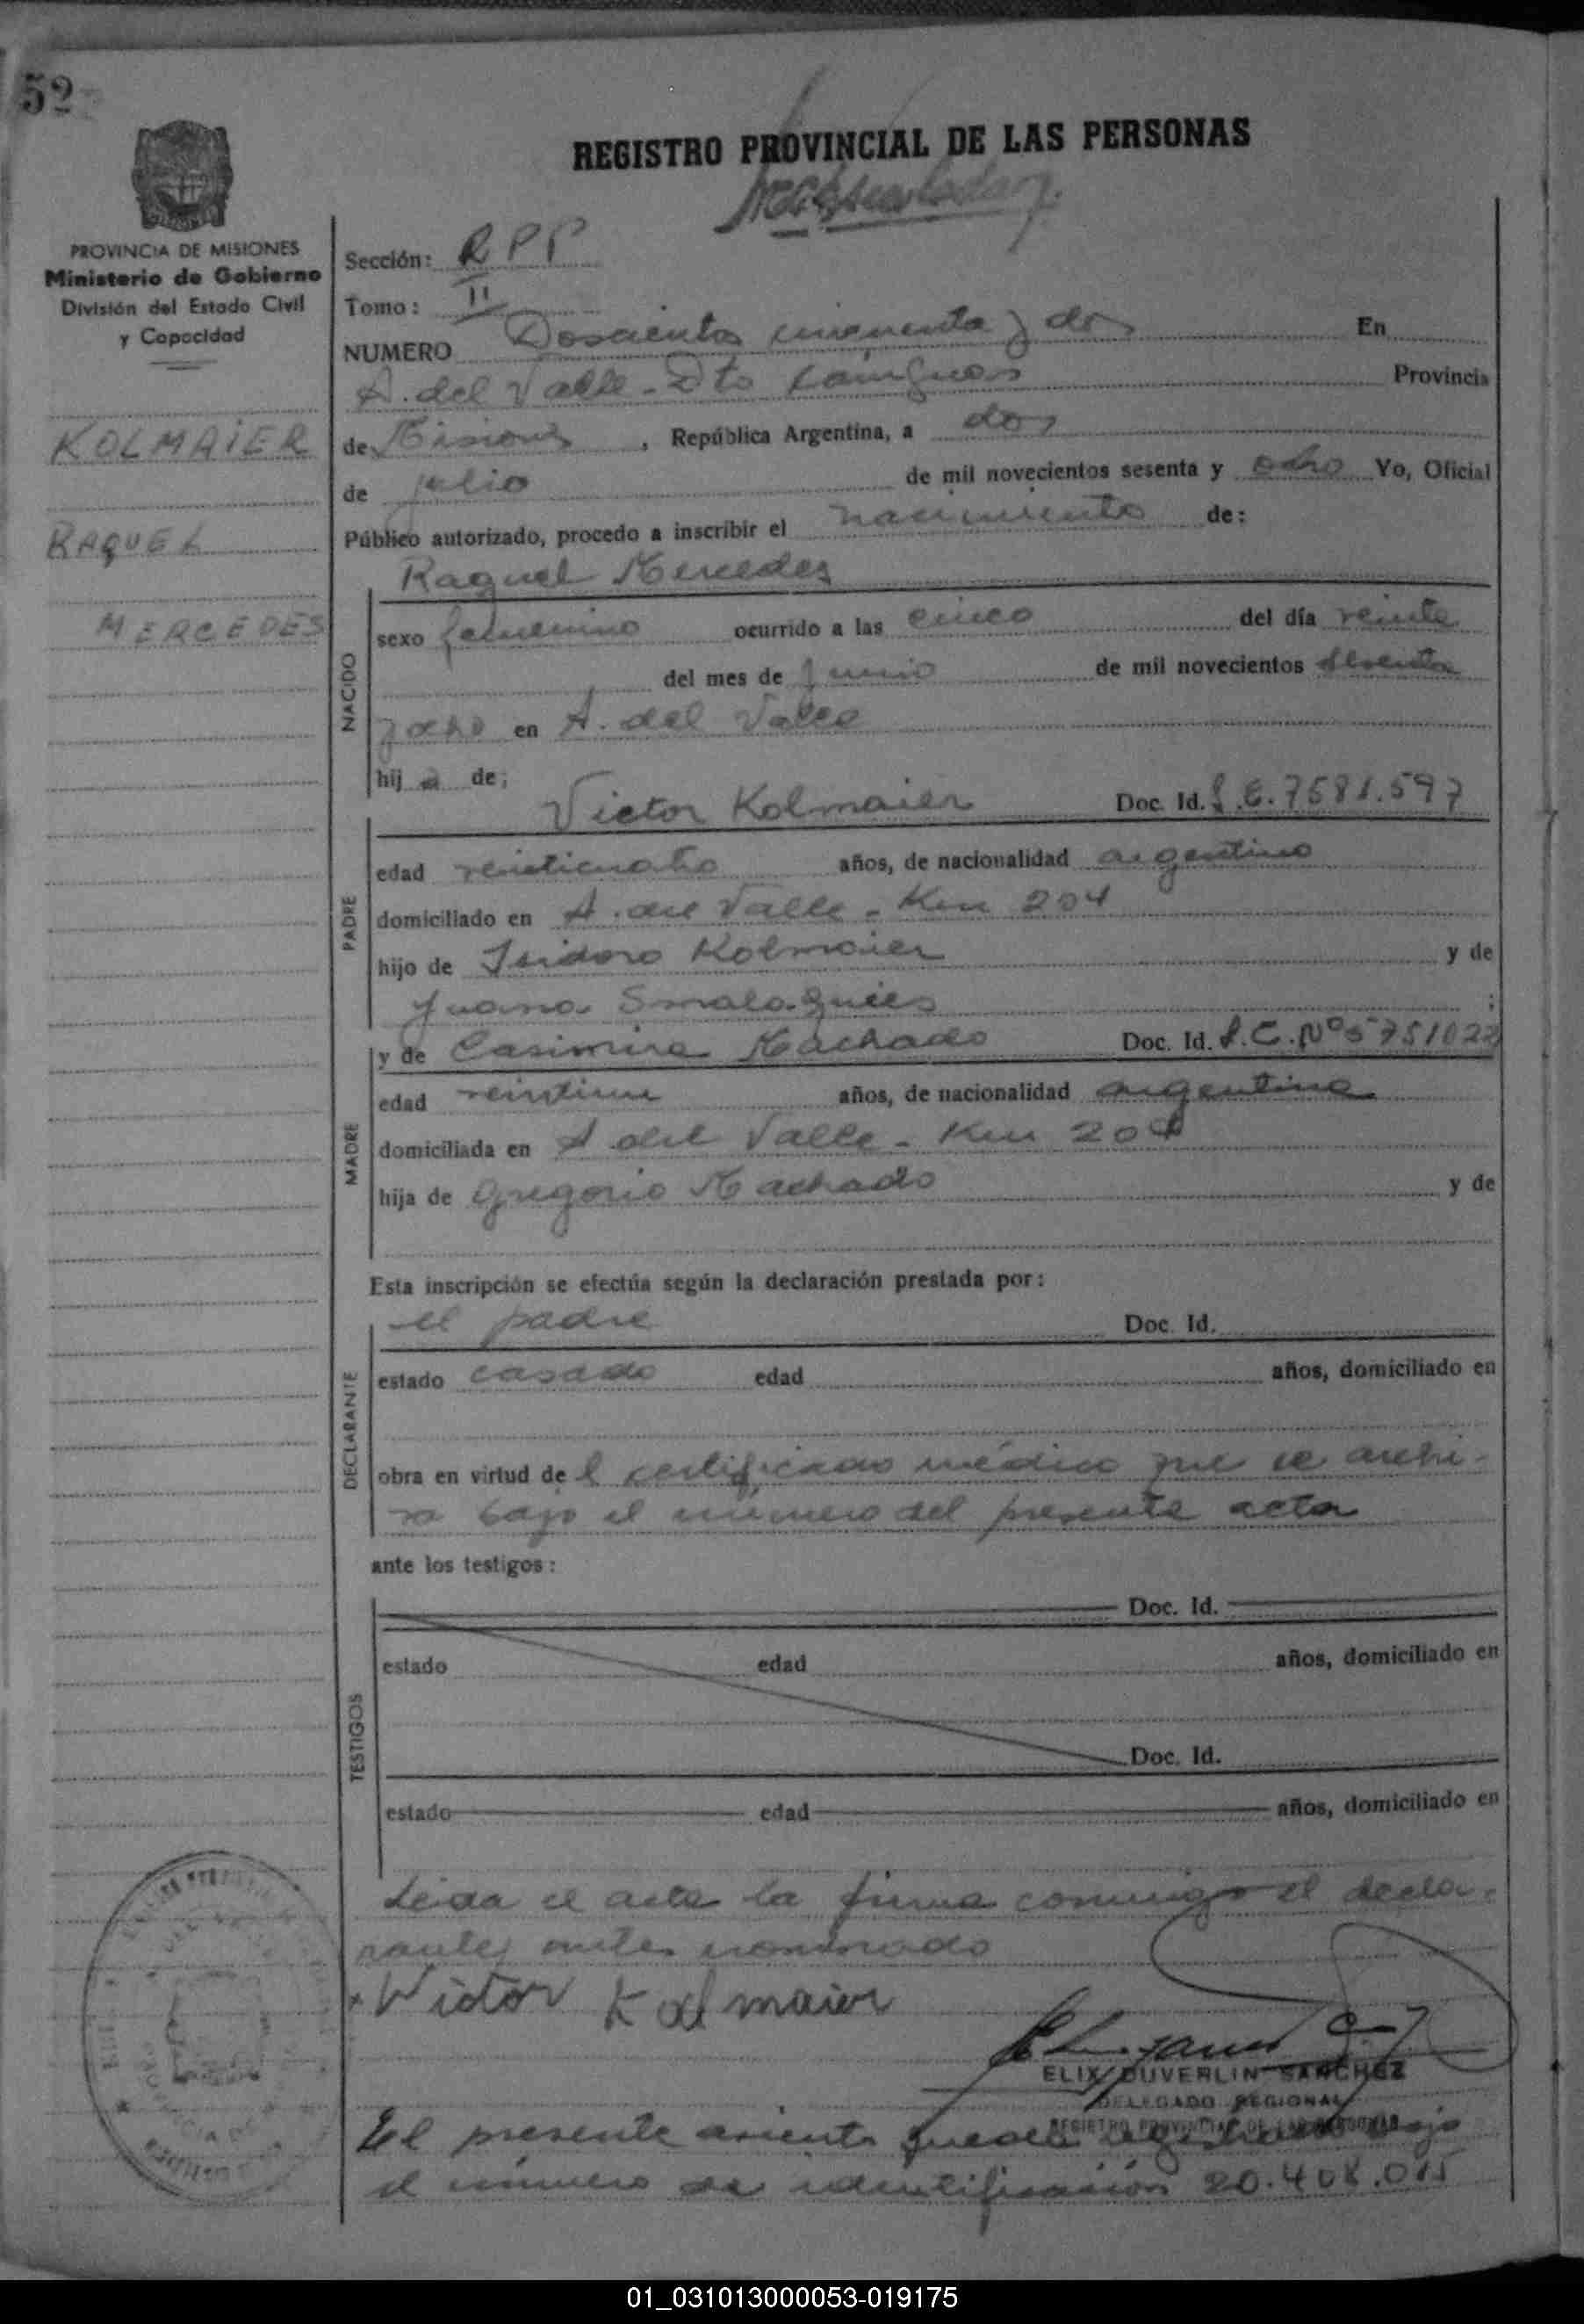 52
REGISTRO PROVINCIAL DE LAS PERSONAS
PROVINCIA DE MISIONES
Ministerio de Gobierno
División del Estado Civil
y Capacidad
KOLMAIER
RAQUEL
MERCEDES
Sección: RPP
Tomo: II
NUMERO Doscientos cincuenta y dos En
A. del Valle - Dto Cainguas Provincia
de Misiones, República Argentina, a dos
de julio de mil novecientos sesenta y ocho Yo, Oficial
Público autorizado, procedo a inscribir el nacimiento de:
Raquel Mercedes
NACIDO
sexo femenino ocurrido a las cinco del día veinte
del mes de junio de mil novecientos sesenta
y ocho en A. del Valle
hija de;
Victor Kolmaier Doc. Id. L.E. 7581.597
PADRE
edad veinticuatro años, de nacionalidad argentino
domiciliado en A. del Valle - Km 204
hijo de Isidoro Kolmaier y de
Juana ;
y de Casimira Machado Doc. Id. L.C. Nº 5751022
MADRE
edad años, de nacionalidad argentina
domiciliada en A del Valle - Km 204
hija de Gregorio Machado y de
Esta inscripción se efectúa según la declaración prestada por:
el padre Doc. Id.
DECLARANTE
estado casado edad años, domiciliado en
obra en virtud del certificado médico que se archi-
va bajo el número del presente acta
ante los testigos:
TESTIGOS
Doc. Id.
estado edad años, domiciliado en
Doc. Id.
estado edad años, domiciliado en
Leida el acta la firma conmigo el decla-
rante, antes nominado
Wictor Kolmaier
ELIX DUVERLIN SANCHEZ
DELEGADO REGIONAL
REGISTRO PROVINCIAL DE LAS PERSONAS
El presente asiento queda registrado bajo
el número de identificación 20.408.015
01_031013000053-019175